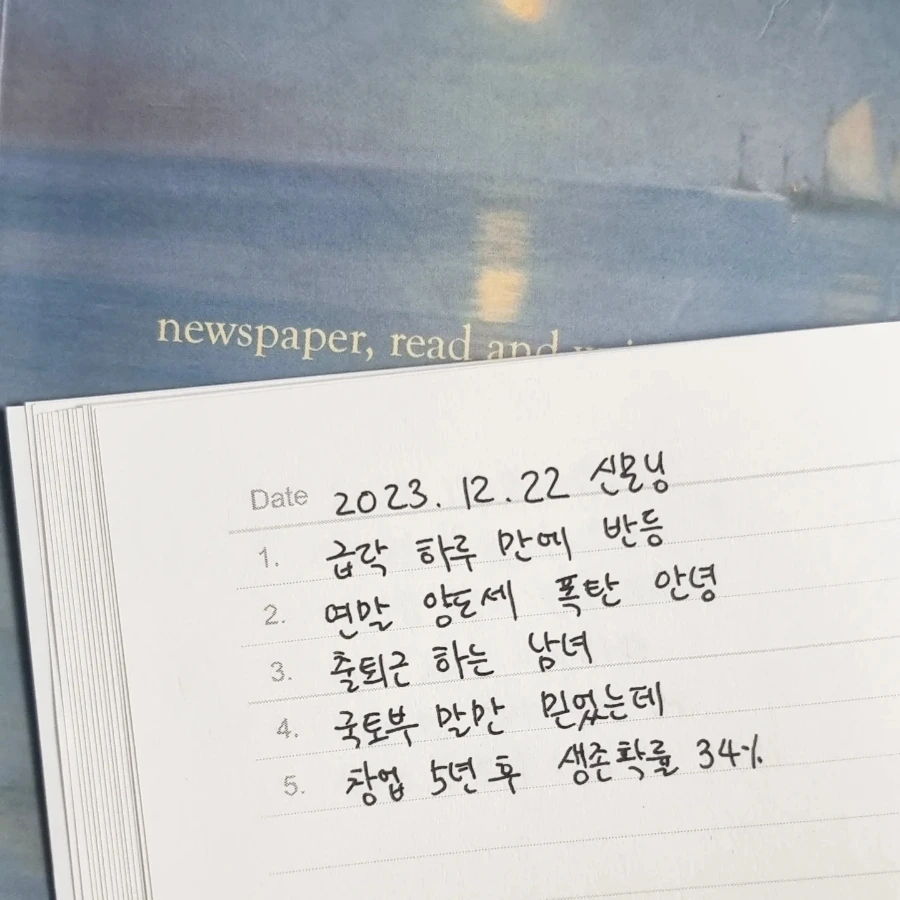 newspaper, read and
Date 2023. 12. 22 신몰닝
1. 급락 하루 만에 반등
2. 연말 양도세 폭탄 안녕
3. 출퇴근 하는 남녀
4. 국토부 말만 믿었는데
5. 창업 5년 후 생존확률 34%